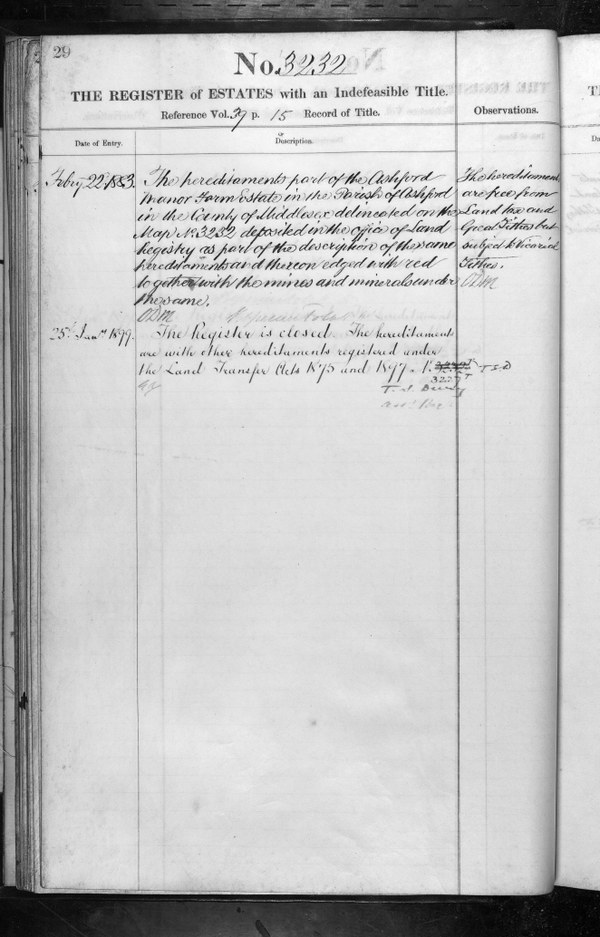 29
No. 3232
THE REGISTER of ESTATES with an Indefeasible Title.
Reference Vol. 39 p. 15 Record of Title.
Observations.
Date of Entry.
Description.
Febry 22 1883.
The hereditaments part of the Ashford
Manor Farm Estate in the Parish of Ashford
in the County of Middlesex delineated on the
Map No. 3232 deposited in the office of Land
Registry as part of the description of the same
hereditaments and thereon edged with red
together with the mines and minerals under
the same.
ODM
The hereditaments
are free from
Land tax and
Great Tithes but
subject to Vicarial
Tithes.
ODM
25th Jany 1899.
The Register is closed. The hereditaments
are with other hereditaments registered under
the Land Transfer Acts 1875 and 1897 No. 3232 T.S.D
3227